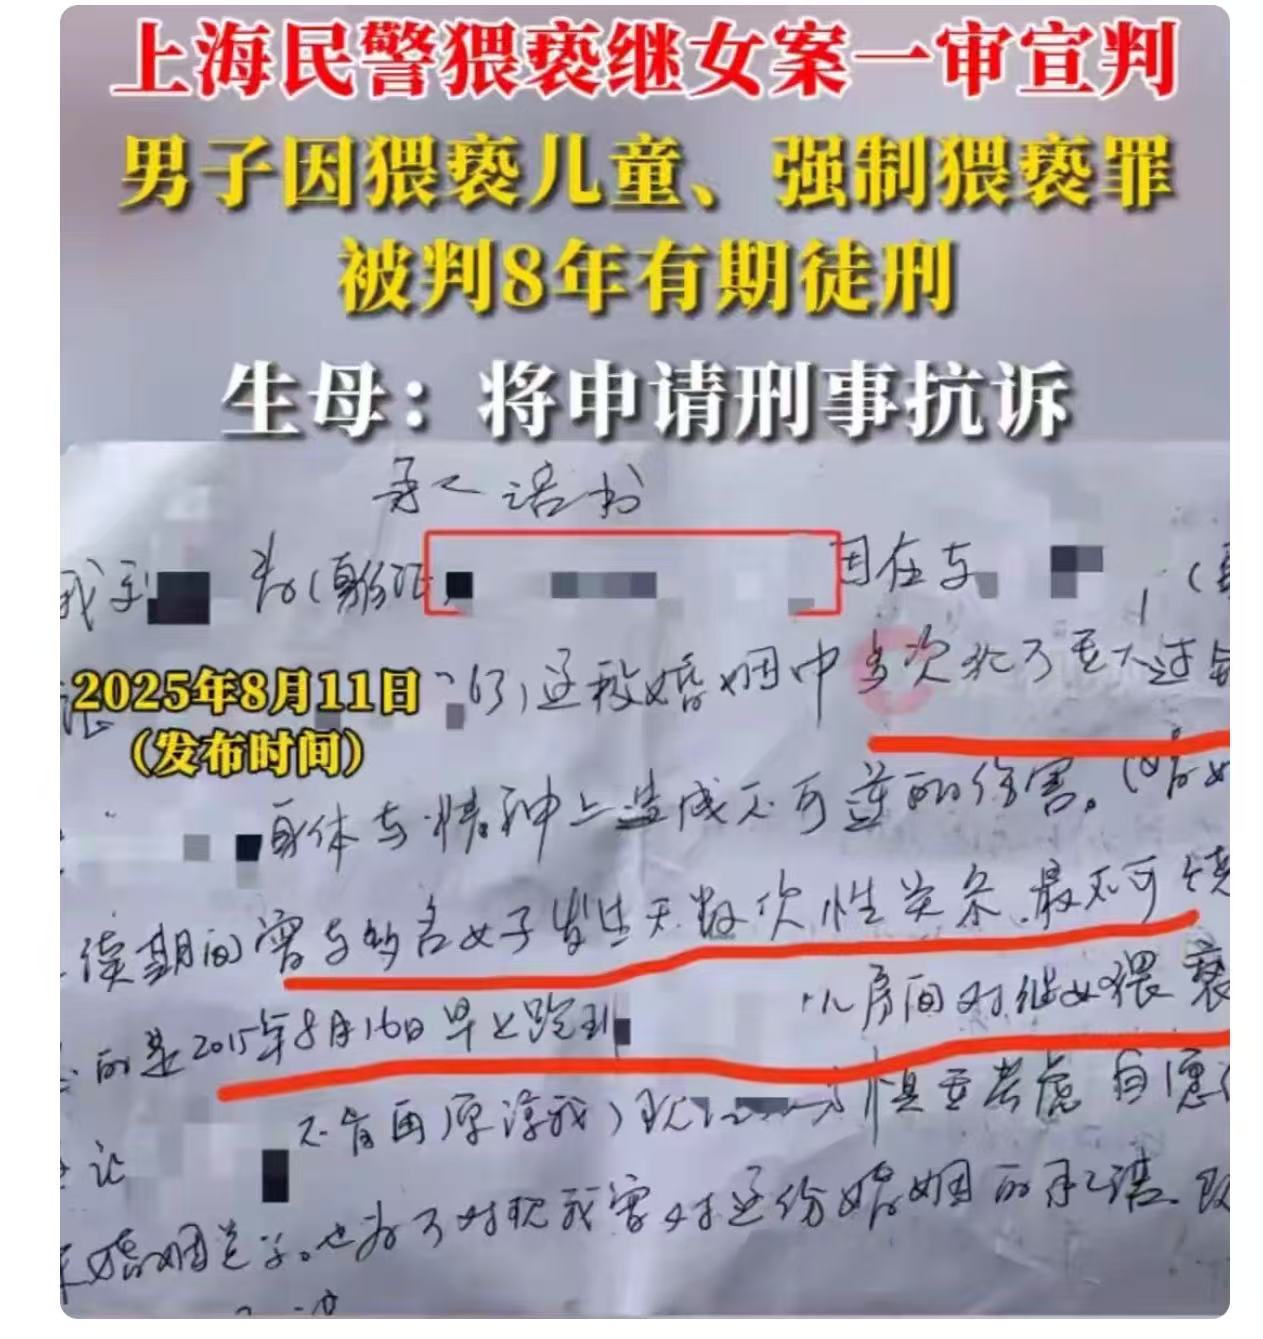 上海民警猥亵继女案一审宣判
男子因猥亵儿童、强制猥亵罪
被判8年有期徒刑
生母：将申请刑事抗诉
承诺书
我 为(身份证 因在与 (
2025年8月11日
(发布时间)
这段婚姻中多次犯了重大过错
身体与精神上造成不可逆的伤害。(婚姻
续期间曾与多名女子发生无数次性关系.最不可饶
的是2015年8月16日早上跑到 房间对继女猥亵
不肯再原谅我)现 慎重考虑自愿
婚姻 也为了对现我曾对这份婚姻的承诺.